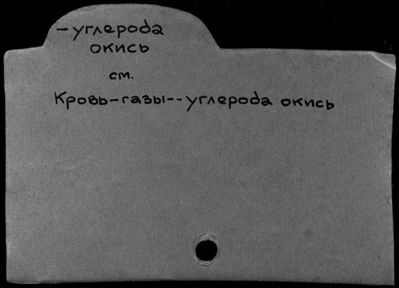 -углерода
окись
см.
Кровь-газы--углерода окись